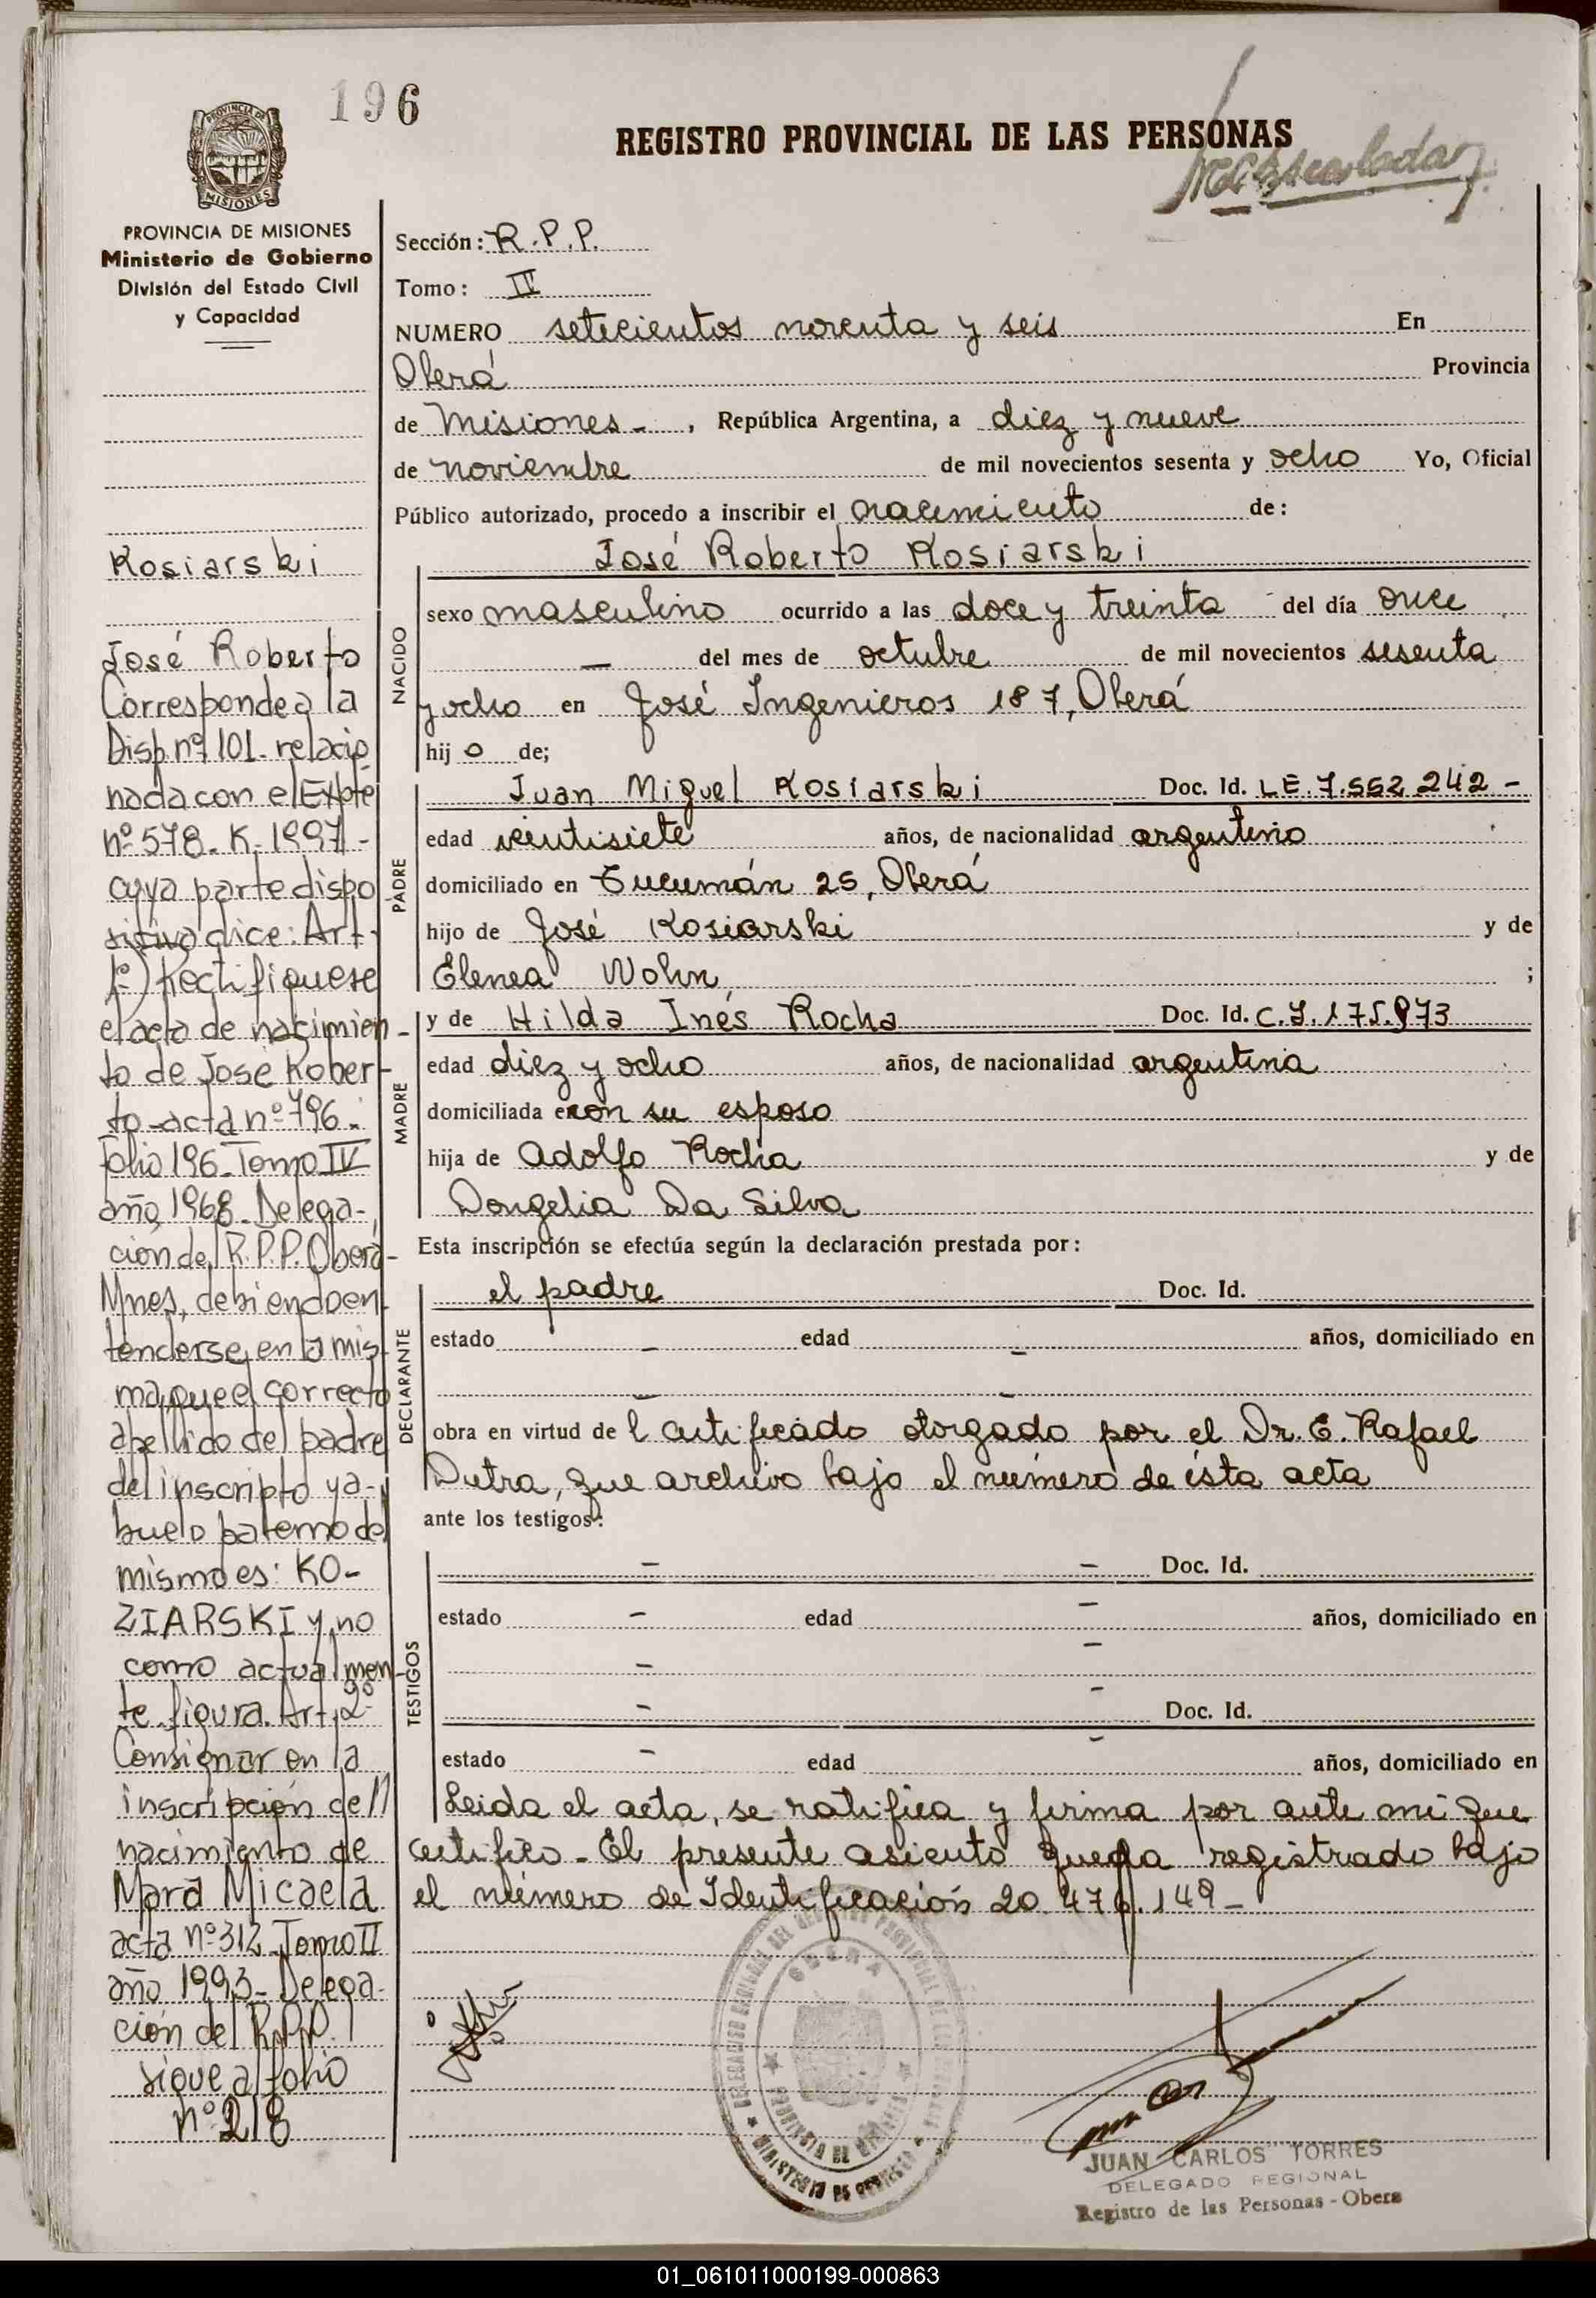 196
REGISTRO PROVINCIAL DE LAS PERSONAS
PROVINCIA DE
MISIONES
PROVINCIA DE MISIONES
Ministerio de Gobierno
División del Estado Civil
y Capacidad
Kosiarski
José Roberto
Corresponde a la
Disp. nº 101 - relacio
nada con el Expte
nº 578 - K - 1997 -
cuya parte dispo
sitivo dice: Art.
1º) Rectifiquese
el acta de nacimien -
to de José Rober-
to - acta nº 796 -
Folio 196 - Tomo IV
año 1968 - Delega-
ción del R.P.P. Oberá -
Mnes, debiendo en
tenderse en la mis
ma que el correcto
apellido del padre
del inscripto y a-
buelo paterno del
mismo es: KO-
ZIARSKI y no
como actualmen-
te figura. Art. 2º
Consignar en la
inscripción de
nacimiento de
Mara Micaela
acta nº 312 - Tomo II
año 1993 - Delega-
ción del R.P.P.
sigue al folio
nº 218
Sección: R.P.P.
Tomo: IV
NUMERO setecientos noventa y seis En
Oberá Provincia
de Misiones - , República Argentina, a diez y nueve
de noviembre de mil novecientos sesenta y ocho Yo, Oficial
Público autorizado, procedo a inscribir el nacimiento de:
José Roberto Kosiarski
NACIDO
sexo masculino ocurrido a las doce y treinta del día once
— del mes de octubre de mil novecientos sesenta
y ocho en José Ingenieros 187, Oberá
hij o de;
PADRE
Juan Miguel Kosiarski Doc. Id. LE. 7.552.242 -
edad veintisiete años, de nacionalidad argentino
domiciliado en Tucumán 25, Oberá
hijo de José Kosiarski y de
Elenea Wohn ;
MADRE
y de Hilda Inés Rocha Doc. Id. C.I. 175.973
edad diez y ocho años, de nacionalidad argentina
domiciliada en con su esposo
hija de Adolfo Rocha y de
Dongelia Da Silva
Esta inscripción se efectúa según la declaración prestada por:
DECLARANTE
el padre Doc. Id.
estado — edad — años, domiciliado en
— —
obra en virtud de l certificado otorgado por el Dr. E. Rafael
Dutra, que archivo bajo el número de ésta acta
ante los testigos:
TESTIGOS
— — Doc. Id.
estado — edad — años, domiciliado en
— —
— — Doc. Id.
estado — edad — años, domiciliado en
Leida el acta, se ratifica y firma por ante mi que
certifico - El presente asiento queda registrado bajo
el número de Identificación 20.476.149 -
OBERA
PROVINCIA DE MISIONES
MINISTERIO DE GOBIERNO
JUAN CARLOS TORRES
DELEGADO REGIONAL
Registro de las Personas - Obera
01_061011000199-000863